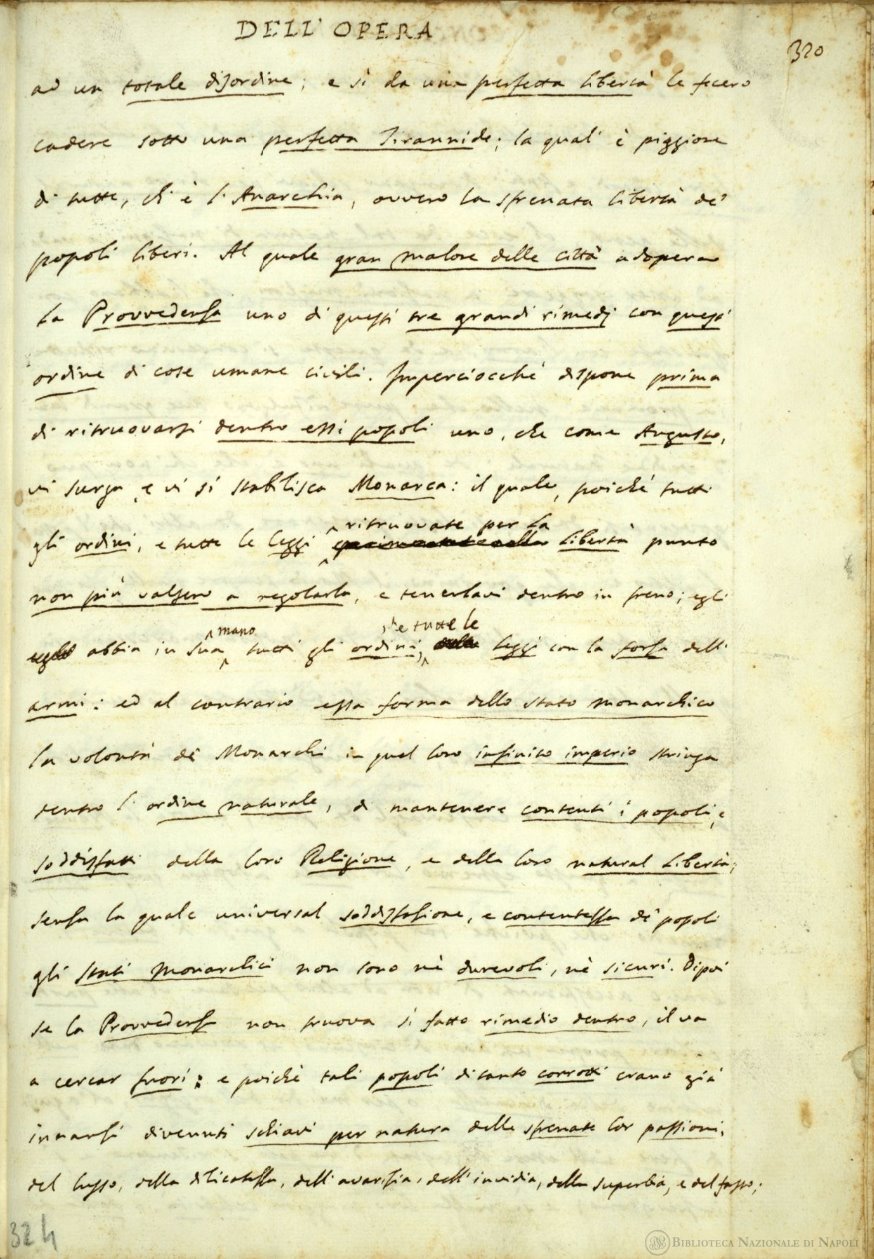 DELL' OPERA
320
ad un totale disordine; e sì da una perfetta libertà le fecero
cadere sotto una perfetta Tirannide; la qual' è piggiore
di tutte, ch' è l'Anarchia, ovvero la sfrenata libertà de'
popoli liberi. Al quale gran malore delle città adopera
la Provvedenza uno di questi tre grandi rimedj con quest'
ordine di cose umane civili. Imperciocchè dispone prima
di ritruovarsi dentro essi popoli uno, che come Augusto,
vi surga, e vi si stabilisca Monarca: il quale, poichè tutti
gli ordini, e tutte le leggi ritruovate per la libertà punto
non più valsero a regolarla, e tenerlavi dentro in freno; egli
abbia in sua mano tutti gli ordini, e tutte le leggi con la forza dell'
armi: ed al contrario essa forma dello stato monarchico
la volontà de' Monarchi in quel loro infinito imperio stringa
dentro l'ordine naturale, di mantenere contenti i popoli, e
soddisfatti della loro Religione, e della loro natural libertà;
senza la quale universal soddisfazione, e contentezza de' popoli
gli Stati Monarchici non sono nè durevoli, nè sicuri. Dipoi
se la Provvedenza non truova sì fatto rimedio dentro, il va
a cercar fuori: e poichè tali popoli di tanto corrotti erano già
innanzi divenuti schiavi per natura delle sfrenate lor passioni,
del lusso, della dilicatezza, dell'avarizia, dell'invidia, della superbia, e del fasto;
324
BIBLIOTECA NAZIONALE DI NAPOLI